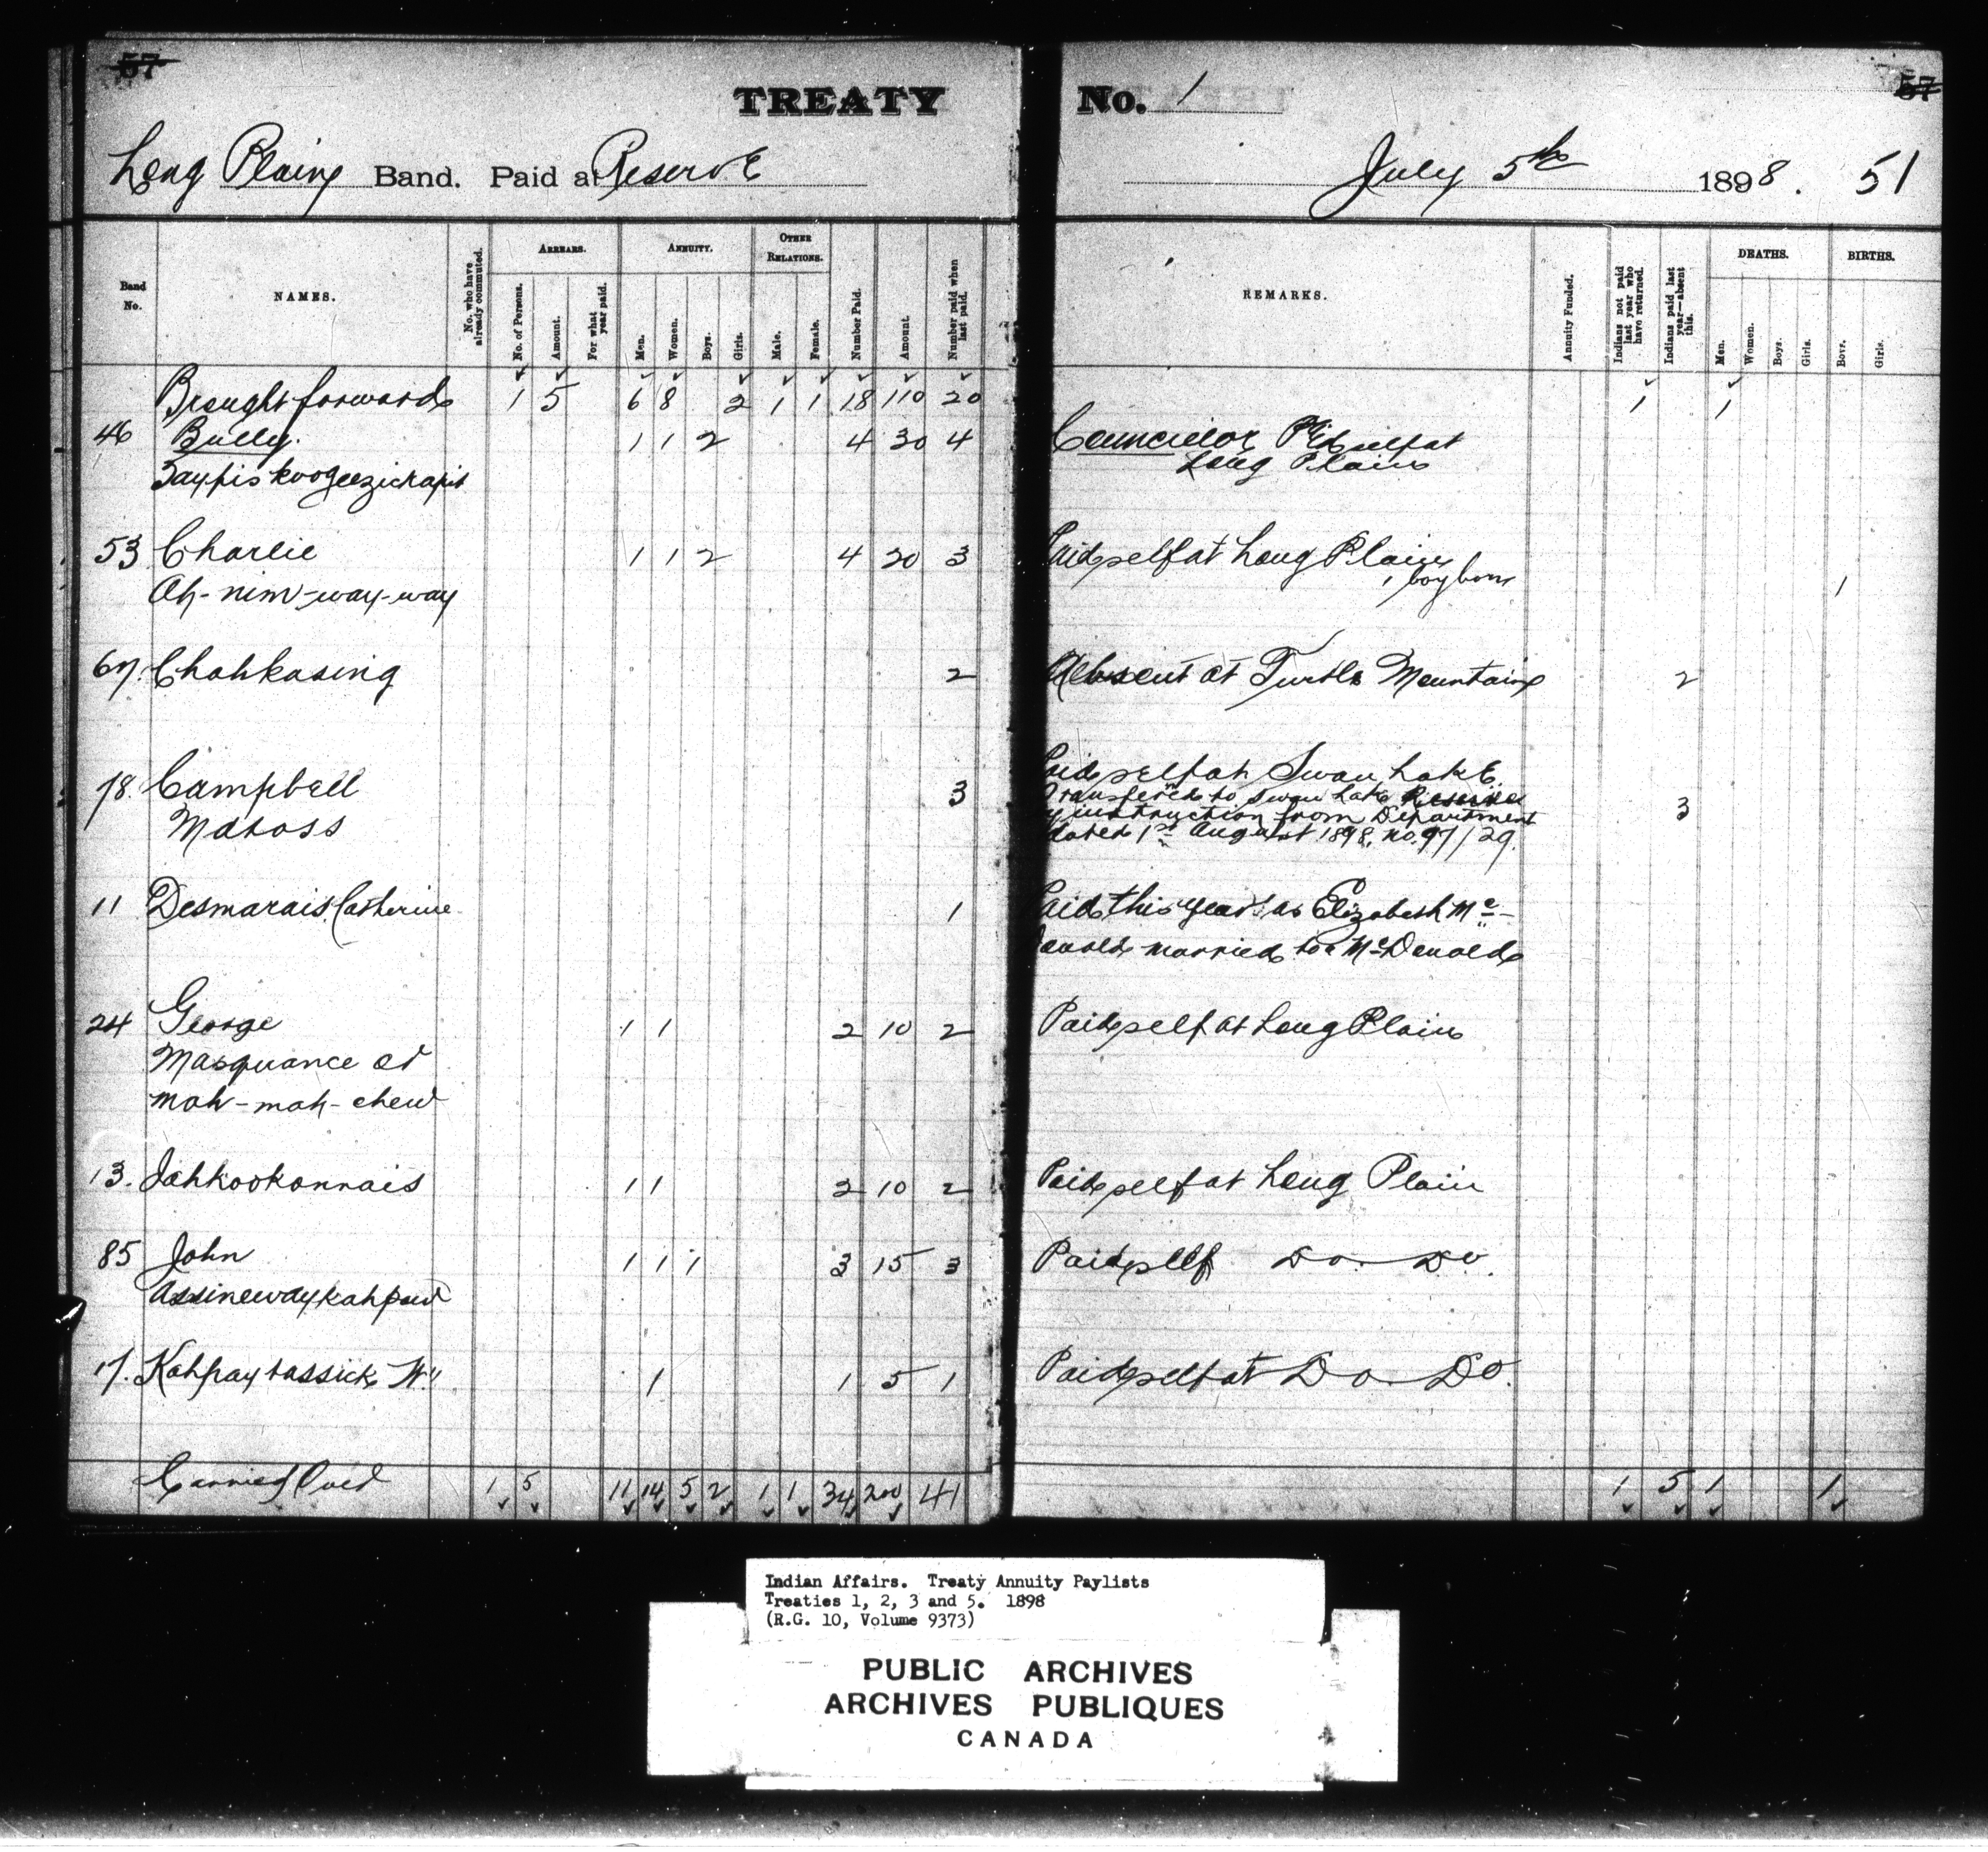 57
TREATY No. 1
57
Long Plain Band. Paid at Reserve July 5th 1898. 51
Band No.
NAMES.
No. who have already commuted.
ARREARS.
No. of Persons.
Amount.
For what year paid.
ANNUITY.
Men.
Women.
Boys.
Girls.
OTHER RELATIONS.
Male.
Female.
Number Paid.
Amount.
Number paid when last paid.
REMARKS.
Annuity Funded.
Indians not paid last year who have returned.
Indians paid last year—absent this.
DEATHS.
Men.
Women.
Boys.
Girls.
BIRTHS.
Boys.
Girls.
Brought forward 1 5 6 8 2 1 1 18 110 20 1 1
46 Bully. 1 1 2 4 30 4 Councillor Pd self at
Long Plain
53 Charlie 1 1 2 4 20 3 Paid self at Long Plain
Ah-nim-way-way 1 boy born 1
67. Chahkasing 2 Absent at Turtle Mountain 2
78. Campbell 3 Paid self at Swan Lake. 3
Transferred to Swan Lake Reserve
by instruction from Department
dated 1st August 1898. No. 97/29.
11 Desmarais Catherine 1 Paid this year as Elizabeth Mc-
Donald married to a McDonald
24 George 1 1 2 10 2 Paid self at Long Plain
Masquance or
mah-mah-chew
13. Jahkookonnais 1 1 2 10 2 Paid self at Long Plain
85 John 1 1 1 3 15 3 Paid self Do. Do.
Assinewaykahpow
17. Kahpaytassick W. 1 1 5 1 Paid self at Do. Do.
Carried Over 1 5 11 14 5 2 1 1 34 200 41 1 5 1 1
Indian Affairs. Treaty Annuity Paylists
Treaties 1, 2, 3 and 5. 1898
(R.G. 10, Volume 9373)
PUBLIC ARCHIVES
ARCHIVES PUBLIQUES
CANADA